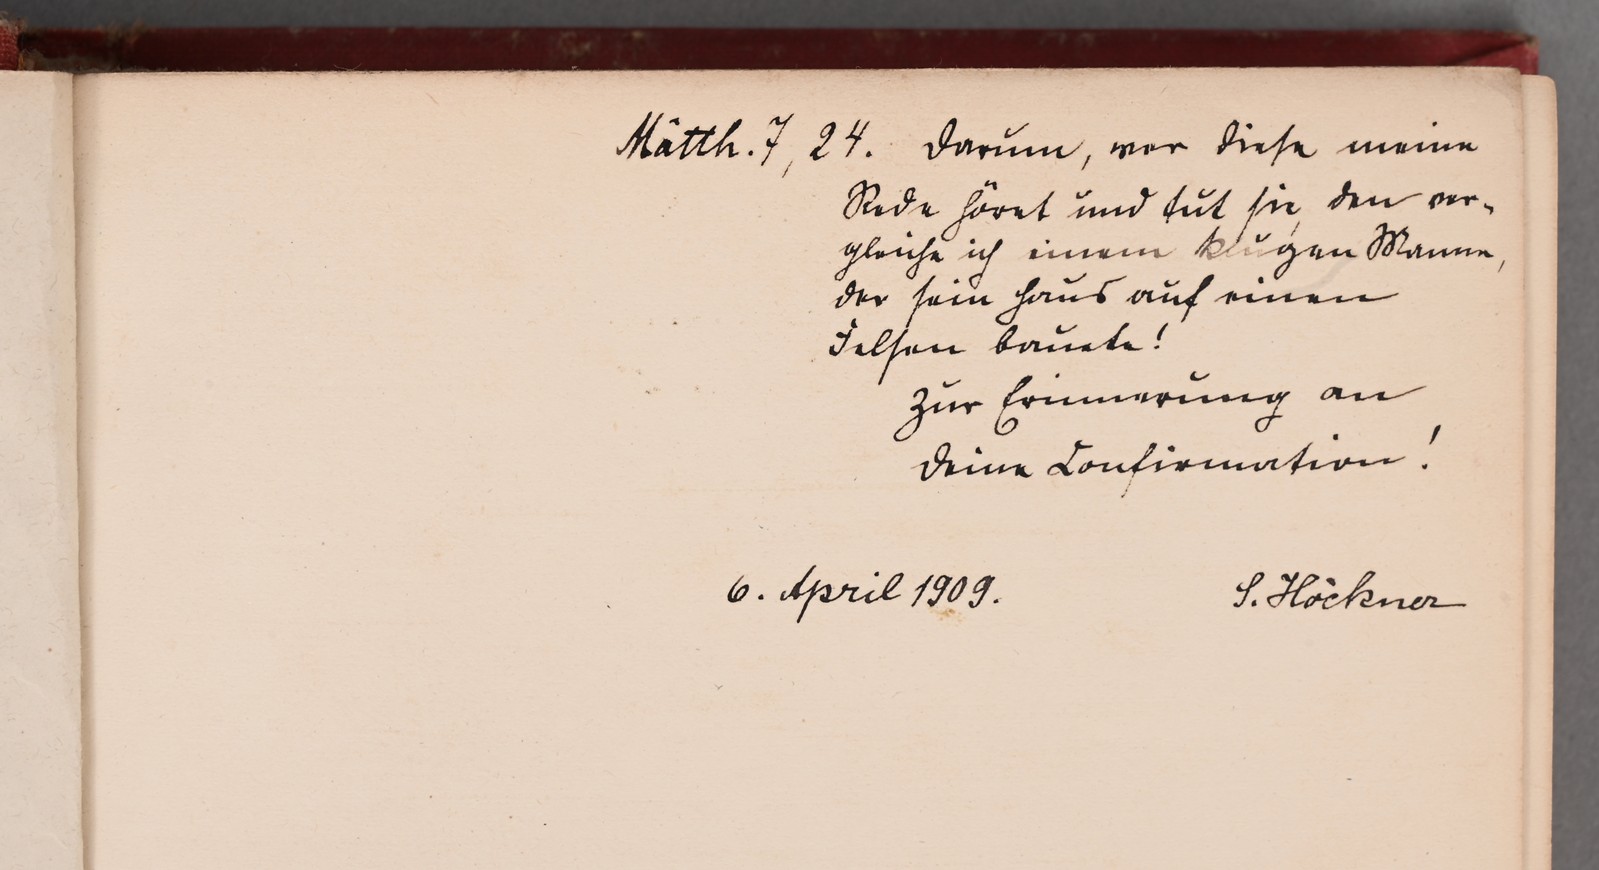 Matth. 7, 24. Darum, wer diese meine
Rede höret und tut sie, den ver-
gleiche ich einem klugen Manne,
der sein Haus auf einen
Felsen bauete!
Zur Erinnerung an
Deine Confirmation!
6. April 1909. S. Höckner